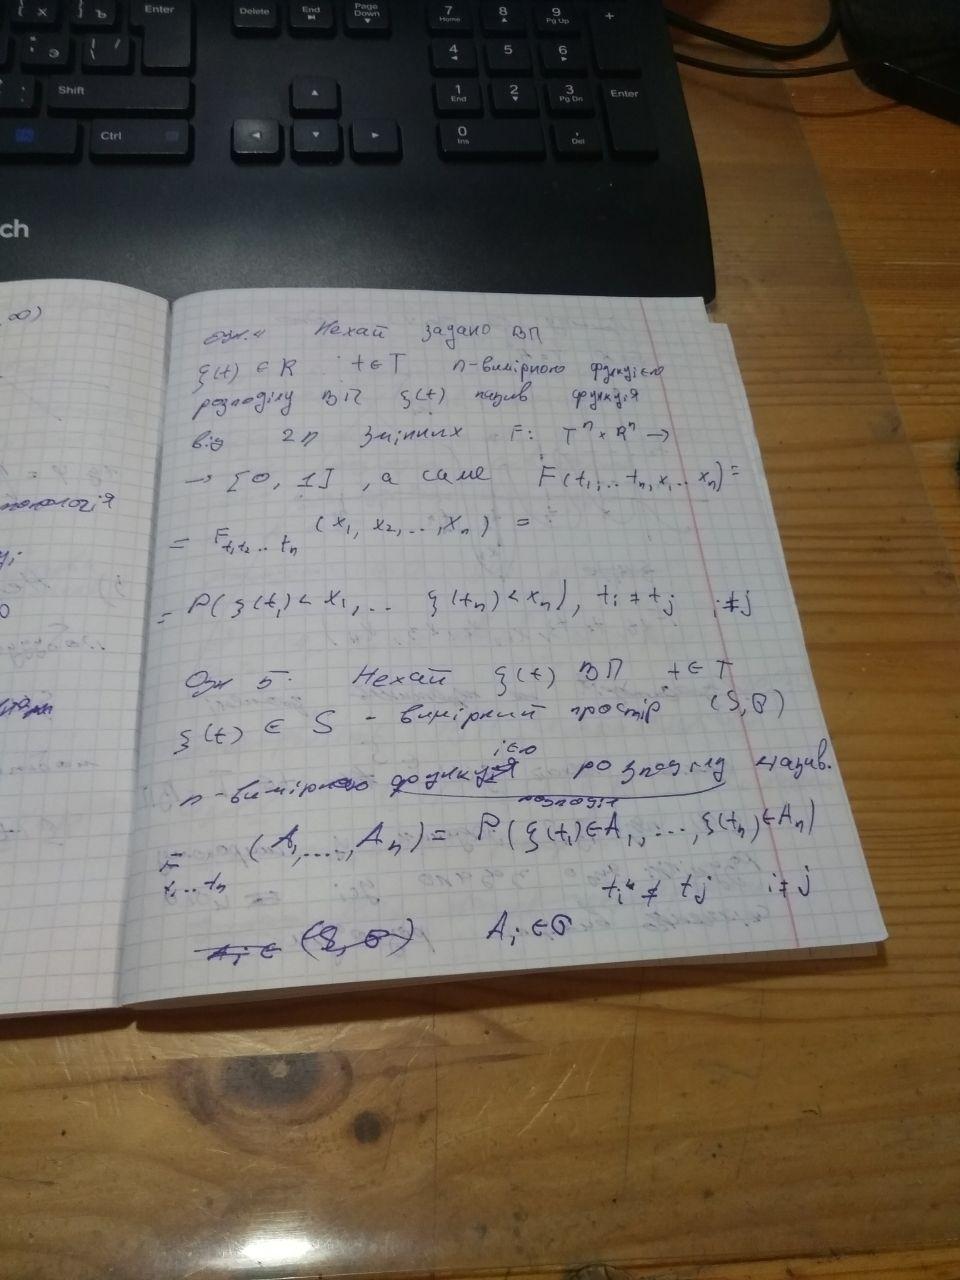 { х
} ъ
Enter
Delete
End
Page Down
7 Home
8
9 Pg Up
+
" ' э
4
5
6
Shift
1 End
2
3 Pg Dn
Enter
Ctrl
0 Ins
, Del
ch
∞)
Озн.4 Нехай задано ВП
ξ(t) ∈ R t ∈ T n-вимірною функцією
розподілу ВП ξ(t) назив функція
від 2n змінних F: Tⁿ × Rⁿ →
→ [0, 1], а саме F(t₁,...tₙ, x₁...xₙ) =
= F t₁t₂...tₙ (x₁, x₂,...,xₙ) =
= P(ξ(t₁) < x₁,... ξ(tₙ) < xₙ), tᵢ ≠ tⱼ i≠j
Озн 5. Нехай ξ(t) ВП t ∈ T
ξ(t) ∈ S - вимірний простір (S, B)
ією
n-вимірною функція розподілу назив.
розподіл
F t₁...tₙ (A₁,...,Aₙ) = P(ξ(t₁)∈A₁,...,ξ(tₙ)∈Aₙ)
tᵢ ≠ tⱼ i≠j
Aᵢ ∈ (S, σ) Aᵢ ∈ σ